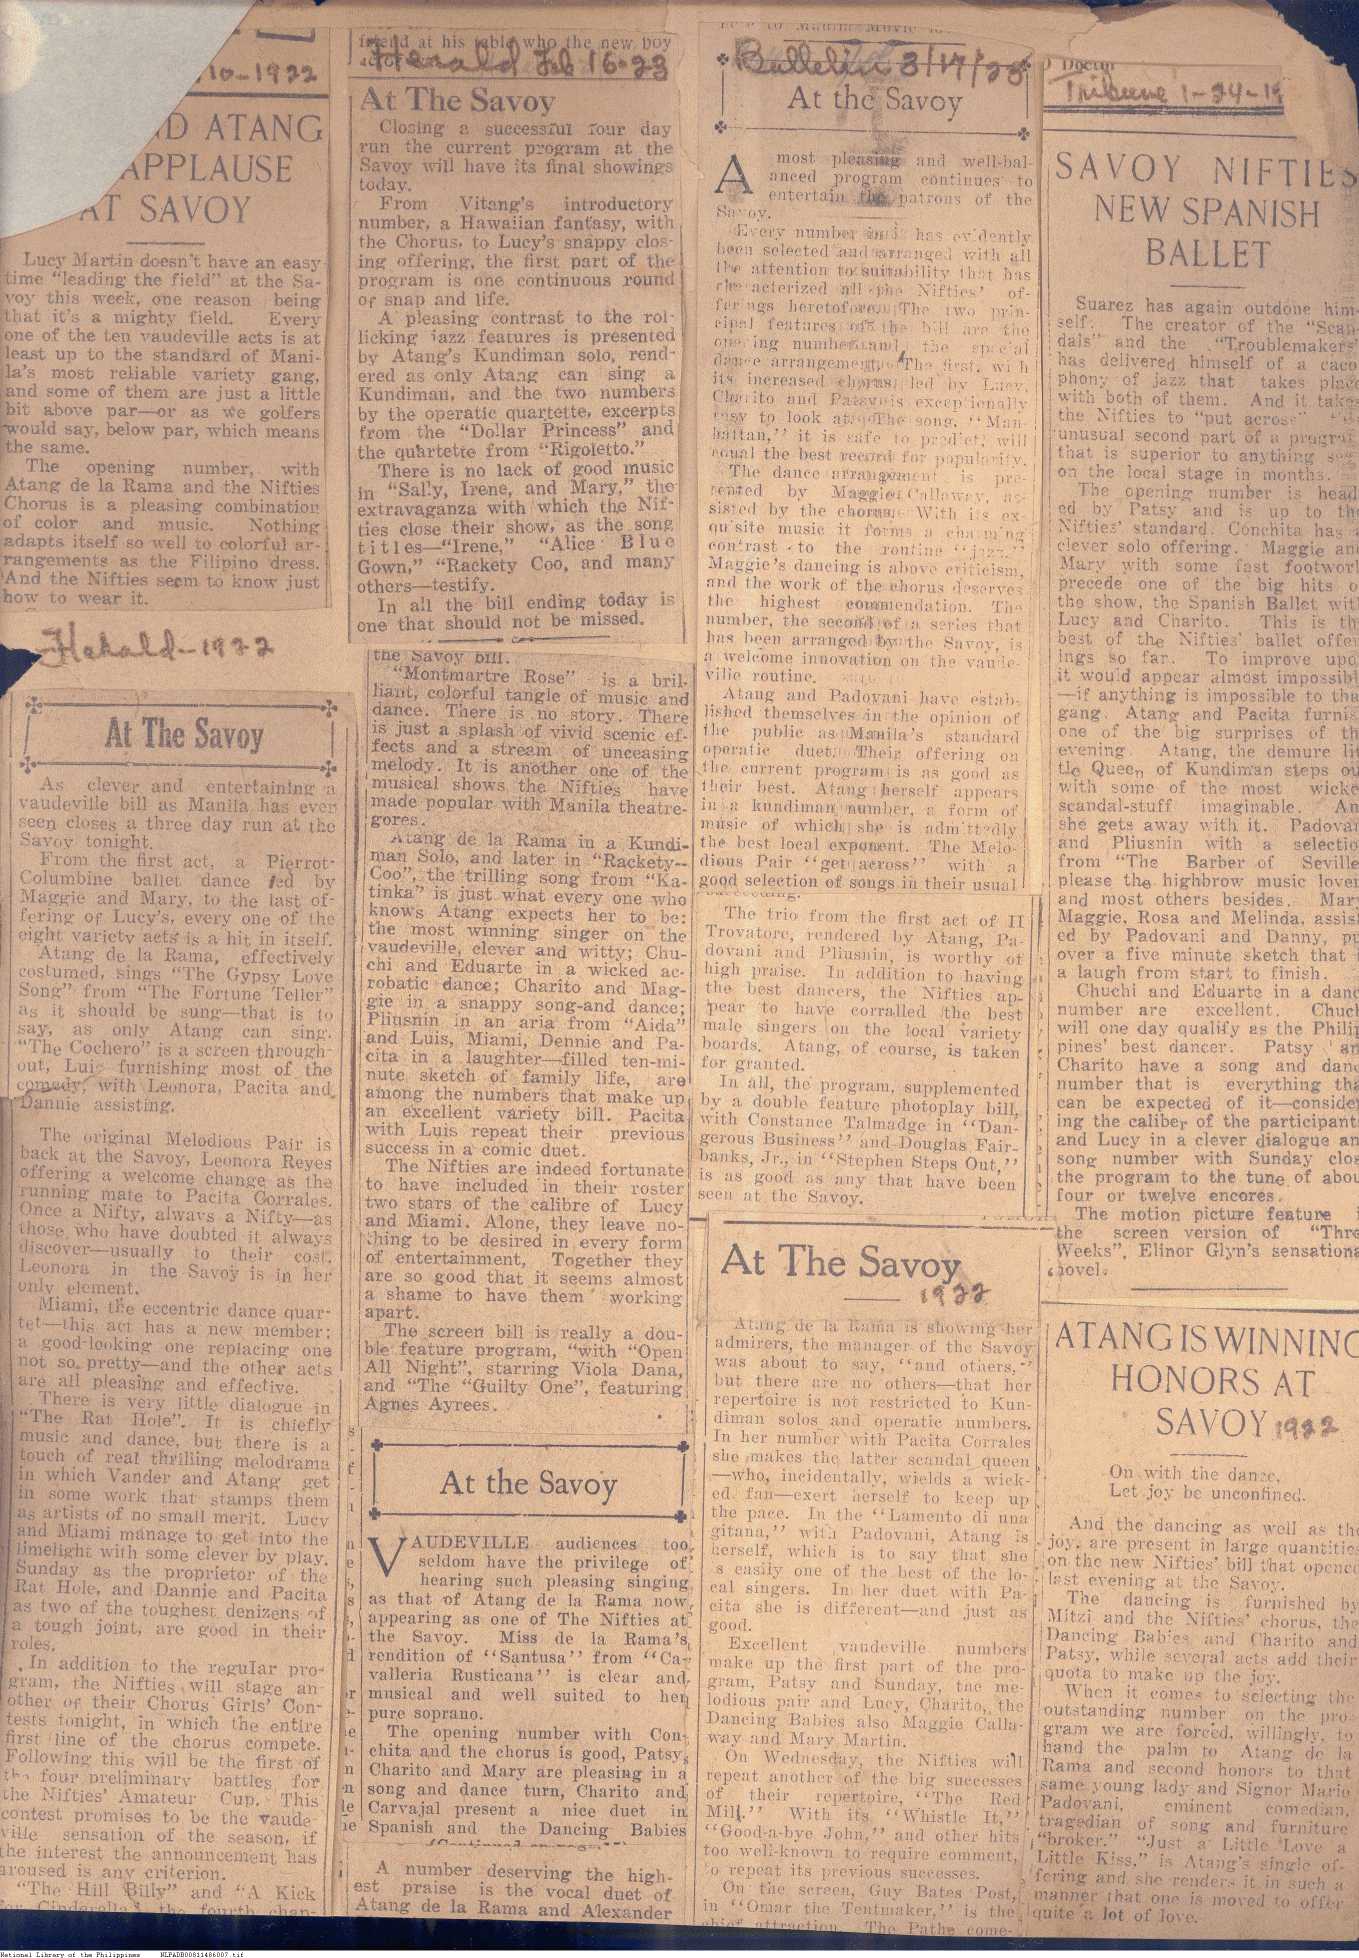 10-1922
D ATANG
APPLAUSE
AT SAVOY
Lucy Martin doesn't have an easy
time "leading the field" at the Sa-
voy this week, one reason being
that it's a mighty field. Every
one of the ten vaudeville acts is at
least up to the standard of Mani-
la's most reliable variety gang,
and some of them are just a little
bit above par—or as we golfers
would say, below par, which means
the same.
The opening number, with
Atang de la Rama and the Nifties
Chorus is a pleasing combination
of color and music. Nothing
adapts itself so well to colorful ar-
rangements as the Filipino dress.
And the Nifties seem to know just
how to wear it.
Herald-1922
At The Savoy
As clever and entertaining a
vaudeville bill as Manila has ever
seen closes a three day run at the
Savoy tonight.
From the first act, a Pierrot-
Columbine ballet dance led by
Maggie and Mary, to the last of-
fering of Lucy's, every one of the
eight variety acts is a hit in itself.
Atang de la Rama, effectively
costumed, sings "The Gypsy Love
Song" from "The Fortune Teller"
as it should be sung—that is to
say, as only Atang can sing.
"The Cochero" is a scream through-
out, Luis furnishing most of the
comedy, with Leonora, Pacita and
Dannie assisting.
The original Melodious Pair is
back at the Savoy, Leonora Reyes
offering a welcome change as the
running mate to Pacita Corrales.
Once a Nifty, always a Nifty—as
those who have doubted it always
discover—usually to their cost.
Leonora in the Savoy is in her
only element.
Miami, the eccentric dance quar-
tet—this act has a new member;
a good-looking one replacing one
not so pretty—and the other acts
are all pleasing and effective.
There is very little dialogue in
"The Rat Hole". It is chiefly
music and dance, but there is a
touch of real thrilling melodrama
in which Vander and Atang get
in some work that stamps them
as artists of no small merit. Lucy
and Miami manage to get into the
limelight with some clever by play.
Sunday as the proprietor of the
Rat Hole, and Dannie and Pacita
as two of the toughest denizens of
a tough joint, are good in their
roles.
In addition to the regular pro-
gram, the Nifties will stage an-
other of their Chorus Girls' Con-
tests tonight, in which the entire
first line of the chorus compete.
Following this will be the first of
the four preliminary battles for
the Nifties' Amateur Cup. This
contest promises to be the vaude-
ville sensation of the season, if
the interest the announcement has
aroused is any criterion.
"The Hill Billy" and "A Kick
for Cinderella" the fourth chap-
friend at his table who the new boy
Herald Feb 16-23
At The Savoy
Closing a successful four day
run the current program at the
Savoy will have its final showings
today.
From Vitang's introductory
number, a Hawaiian fantasy, with
the Chorus, to Lucy's snappy clos-
ing offering, the first part of the
program is one continuous round
of snap and life.
A pleasing contrast to the rol-
licking jazz features is presented
by Atang's Kundiman solo, rend-
ered as only Atang can sing a
Kundiman, and the two numbers
by the operatic quartette, excerpts
from the "Dollar Princess" and
the quartette from "Rigoletto."
There is no lack of good music
in "Sally, Irene, and Mary," the
extravaganza with which the Nif-
ties close their show, as the song
titles—"Irene," "Alice Blue
Gown," "Rackety Coo, and many
others—testify.
In all the bill ending today is
one that should not be missed.
the Savoy bill.
"Montmartre Rose" is a bril-
liant, colorful tangle of music and
dance. There is no story. There
is just a splash of vivid scenic ef-
fects and a stream of unceasing
melody. It is another one of the
musical shows the Nifties have
made popular with Manila theatre-
gores.
Atang de la Rama in a Kundi-
man Solo, and later in "Rackety--
Coo", the trilling song from "Ka-
tinka" is just what every one who
knows Atang expects her to be:
the most winning singer on the
vaudeville, clever and witty; Chu-
chi and Eduarte in a wicked ac-
robatic dance; Charito and Mag-
gie in a snappy song-and dance;
Pliusnin in an aria from "Aida"
and Luis, Miami, Dennie and Pa-
cita in a laughter—filled ten-mi-
nute sketch of family life, are
among the numbers that make up
an excellent variety bill. Pacita
with Luis repeat their previous
success in a comic duet.
The Nifties are indeed fortunate
to have included in their roster
two stars of the calibre of Lucy
and Miami. Alone, they leave no-
thing to be desired in every form
of entertainment, Together they
are so good that it seems almost
a shame to have them working
apart.
The screen bill is really a dou-
ble feature program, "with "Open
All Night", starring Viola Dana,
and "The "Guilty One", featuring
Agnes Ayrees.
At the Savoy
VAUDEVILLE audiences too
seldom have the privilege of
hearing such pleasing singing
as that of Atang de la Rama now
appearing as one of The Nifties at
the Savoy. Miss de la Rama's
rendition of "Santusa" from "Ca-
valleria Rusticana" is clear and
musical and well suited to her
pure soprano.
The opening number with Con-
chita and the chorus is good, Patsy,
Charito and Mary are pleasing in a
song and dance turn, Charito and
Carvajal present a nice duet in
Spanish and the Dancing Babies
A number deserving the high-
est praise is the vocal duet of
Atang de la Rama and Alexander
Bulletin 3/17/23
At the Savoy
A most pleasing and well-bal-
anced program continues to
entertain the patrons of the
Savoy.
Every number has evidently
been selected and arranged with all
the attention to suitability that has
characterized all the Nifties' of-
ferings heretofore. The two prin-
cipal features of the bill are the
opening number and the special
dance arrangement. The first, with
its increased chorus, led by Lucy,
Charito and Patsy is exceptionally
easy to look at. The song, "Man-
hattan," it is safe to predict, will
equal the best record for popularity.
The dance arrangement is pre-
sented by Maggie Calloway, as-
sisted by the chorus. With its ex-
quisite music it forms a charming
contrast to the routine "jazz."
Maggie's dancing is above criticism,
and the work of the chorus deserves
the highest commendation. The
number, the second of a series that
has been arranged by the Savoy, is
a welcome innovation on the vaude-
ville routine.
Atang and Padovani have estab-
lished themselves in the opinion of
the public as Manila's standard
operatic duet. Their offering on
the current program is as good as
their best. Atang herself appears
in a kundiman number, a form of
music of which she is admittedly
the best local exponent. The Melo-
dious Pair "get across" with a
good selection of songs in their usual
The trio from the first act of Il
Trovatore, rendered by Atang, Pa-
dovani and Pliusnin, is worthy of
high praise. In addition to having
the best dancers, the Nifties ap-
pear to have corralled the best
male singers on the local variety
boards. Atang, of course, is taken
for granted.
In all, the program, supplemented
by a double feature photoplay bill,
with Constance Talmadge in "Dan-
gerous Business" and Douglas Fair-
banks, Jr., in "Stephen Steps Out,"
is as good as any that have been
seen at the Savoy.
At The Savoy
1922
Atang de la Rama is showing her
admirers, the manager of the Savoy
was about to say, "and others,"
but there are no others—that her
repertoire is not restricted to Kun-
diman solos and operatic numbers.
In her number with Pacita Corrales
she makes the latter scandal queen
—who, incidentally, wields a wick-
ed fan—exert herself to keep up
the pace. In the "Lamento di una
gitana," with Padovani, Atang is
herself, which is to say that she
s easily one of the best of the lo-
cal singers. In her duet with Pa-
cita she is different—and just as
good.
Excellent vaudeville numbers
make up the first part of the pro-
gram, Patsy and Sunday, the me-
lodious pair and Lucy, Charito, the
Dancing Babies also Maggie Calla-
way and Mary Martin.
On Wednesday, the Nifties will
repeat another of the big successes
of their repertoire, "The Red
Mill." With its "Whistle It,"
"Good-a-bye John," and other hits
too well-known to require comment,
to repeat its previous successes.
On the screen, Guy Bates Post,
in "Omar the Tentmaker," is the
chief attraction. The Pathe come-
Tribune 1-24-19
SAVOY NIFTIES
NEW SPANISH
BALLET
Suarez has again outdone him-
self. The creator of the "Scan-
dals" and the "Troublemakers"
has delivered himself of a caco-
phony of jazz that takes place
with both of them. And it takes
the Nifties to "put across"
unusual second part of a program
that is superior to anything
on the local stage in months.
The opening number is head-
ed by Patsy and is up to the
Nifties' standard. Conchita has a
clever solo offering. Maggie and
Mary with some fast footwork
precede one of the big hits of
the show, the Spanish Ballet with
Lucy and Charito. This is the
best of the Nifties' ballet offer-
ings so far. To improve upon
it would appear almost impossible
—if anything is impossible to that
gang. Atang and Pacita furnish
one of the big surprises of the
evening. Atang, the demure lit-
tle Queen of Kundiman steps out
with some of the most wicked
scandal-stuff imaginable. And
she gets away with it. Padovani
and Pliusnin with a selection
from "The Barber of Seville"
please the highbrow music lovers
and most others besides. Mary
Maggie, Rosa and Melinda, assist-
ed by Padovani and Danny, put
over a five minute sketch that is
a laugh from start to finish.
Chuchi and Eduarte in a dance
number are excellent. Chuchi
will one day qualify as the Philip-
pines' best dancer. Patsy and
Charito have a song and dance
number that is everything that
can be expected of it—consider-
ing the caliber of the participants
and Lucy in a clever dialogue and
song number with Sunday close
the program to the tune of about
four or twelve encores.
The motion picture feature is
the screen version of "Three
Weeks", Elinor Glyn's sensational
novel.
ATANG IS WINNING
HONORS AT
SAVOY 1922
On with the dance,
Let joy be unconfined.
And the dancing as well as the
joy, are present in large quantities
on the new Nifties' bill that opened
last evening at the Savoy.
The dancing is furnished by
Mitzi and the Nifties' chorus, the
Dancing Babies and Charito and
Patsy, while several acts add their
quota to make up the joy.
When it comes to selecting the
outstanding number on the pro-
gram we are forced, willingly, to
hand the palm to Atang de la
Rama and second honors to that
same young lady and Signor Mario
Padovani, eminent comedian,
tragedian of song and furniture
"broker." "Just a Little Love a
Little Kiss," is Atang's single of-
fering and she renders it in such a
manner that one is moved to offer
quite a lot of love.
National Library of the Philippines NLPADB00811486007.tif